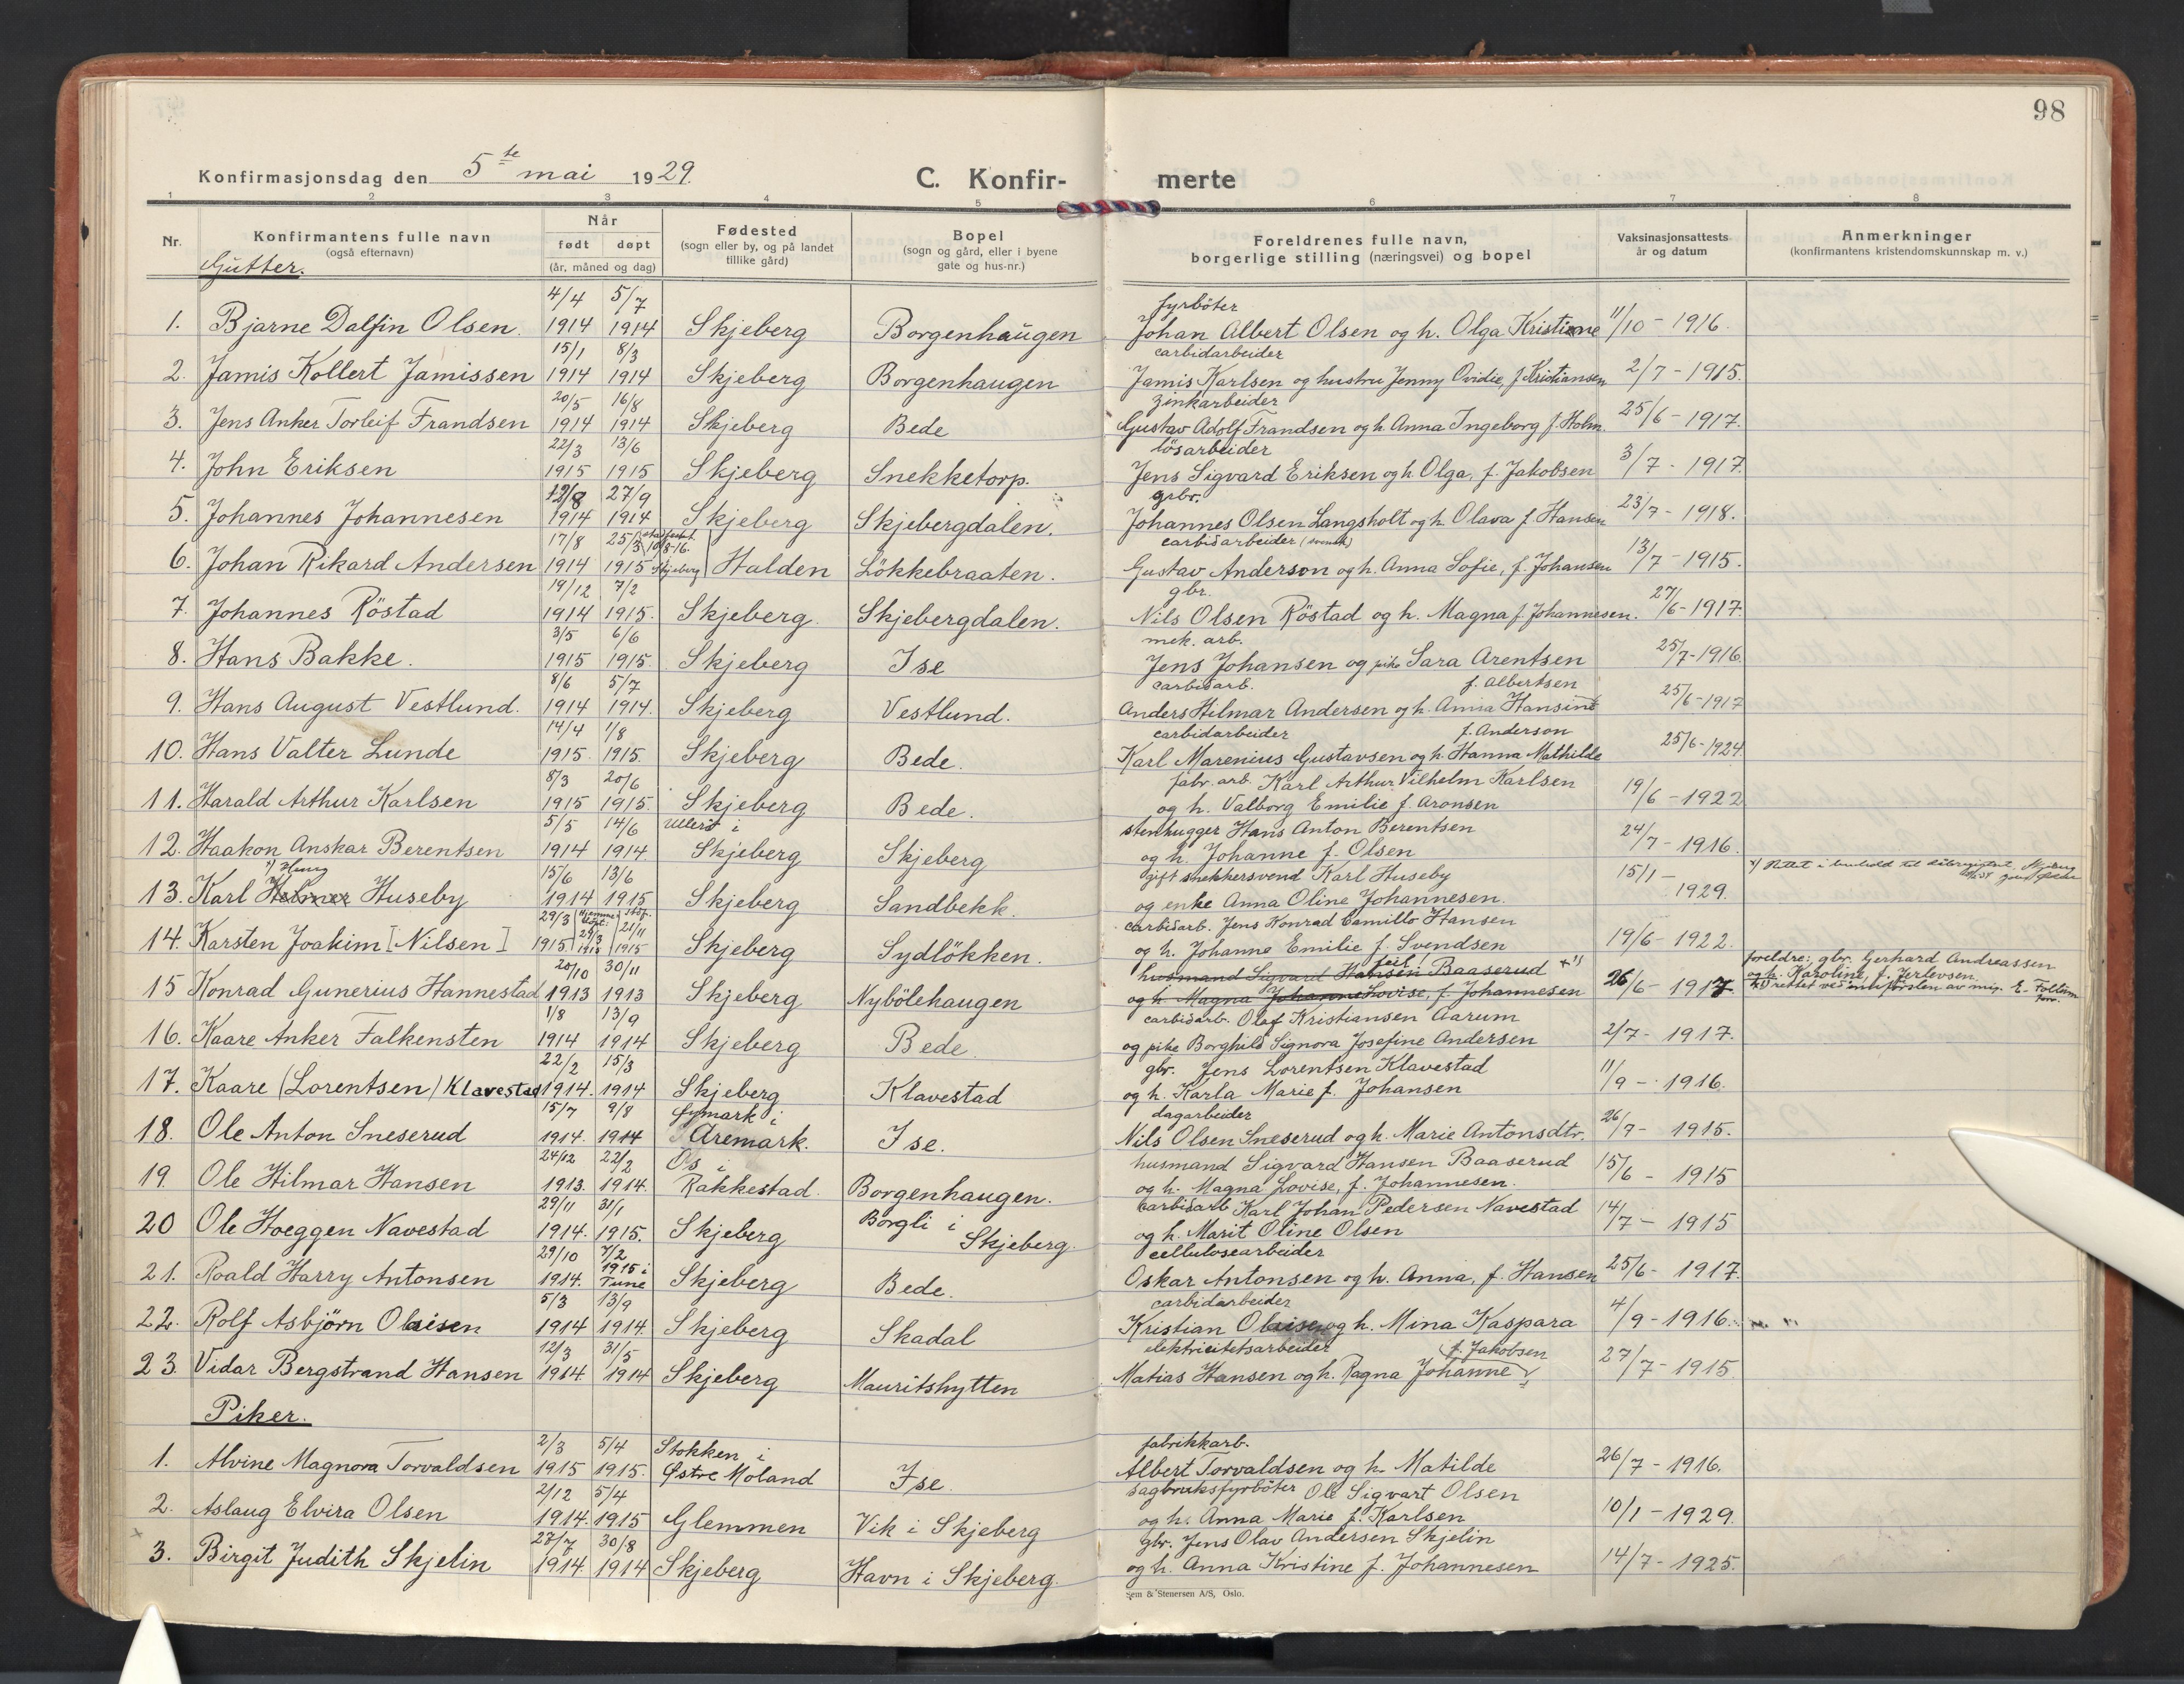 98
Konfirmasjonsdag den 5te mai 1929.
C. Konfir- merte
1 2 3 4 5 6 7 8
Nr.
Konfirmantens fulle navn
(også efternavn)
Når
født døpt
(år, måned og dag)
Fødested
(sogn eller by, og på landet
tillike gård)
Bopel
(sogn og gård, eller i byene
gate og hus-nr.)
Foreldrenes fulle navn,
borgerlige stilling (næringsvei) og bopel
Vaksinasjonsattests
år og datum
Anmerkninger
(konfirmantens kristendomskunnskap m. v.)
Gutter.
4/4 5/7 fyrböter
1. Bjarne Dalfin Olsen. 1914 1914 Skjeberg Borgenhaugen Johan Albert Olsen og h. Olga Kristiane 11/10 - 1916.
15/1 8/3 carbidarbeider
2. Jamis Kollert Jamissen 1914 1914 Skjeberg Borgenhaugen Jamis Karlsen og hustru Jenny Ovidie, f. Kristiansen 2/7 - 1915.
20/5 16/8 zinkarbeider
3. Jens Anker Torleif Frandsen 1914 1914 Skjeberg Bede Gustav Adolf Frandsen og h. Anna Ingeborg f. Holm. 25/6 - 1917.
22/3 13/6 lösarbeider
4. John Eriksen 1915 1915 Skjeberg Snekketorp. Jens Sigvard Eriksen og h. Olga, f. Jakobsen 3/7 - 1917.
12/8 27/9 grbr.
5. Johannes Johannesen 1914 1914 Skjeberg Skjebergdalen. Johannes Olsen Langsholt og h. Olava f. Hansen 23/7 - 1918.
17/8 25/3 stadfestet 10/8-16. carbidarbeider (svensk)
6. Johan Rikard Andersen 1914 1915 Skjeberg Halden Lökkebraaten. Gustav Anderson og h. Anna Sofie, f. Johansen 13/7 - 1915.
19/12 7/2 gbr.
7. Johannes Röstad 1914 1915. Skjeberg. Skjebergdalen. Nils Olsen Röstad og h. Magna f. Johannesen. 27/6 - 1917.
3/5 6/6 mek. arb.
8. Hans Bakke. 1915 1915. Skjeberg Ise Jens Johansen og pike Sara Arentsen 25/7 - 1916.
8/6 5/7 carbidarb. f. Albertsen
9. Hans August Vestlund. 1914 1914. Skjeberg Vestlund. Anders Hilmar Andersen og h. Anna Hansine 25/6 - 1917
14/4 1/8 carbidarbeider f. Anderson
10. Hans Valter Lunde 1915. 1915. Skjeberg Bede. Karl Marenius Gustavsen og h. Hanna Mathilde 25/6 - 1924.
8/3 20/6 fabr. arb. Karl Arthur Vilhelm Karlsen
11. Harald Arthur Karlsen 1915 1915. Skjeberg Bede. og h. Valborg Emilie f. Aronsen 19/6 - 1922
5/5 14/6 Ullerö i stenhugger Hans Anton Berentsen
12. Haakon Anskar Berentsen 1914 1914. Skjeberg Skjeberg og h. Johanne f. Olsen 24/7 - 1916.
x) Henry 15/6 13/6 gift snekkersvend Karl Huseby
13. Karl Helmer Huseby 1914 1915 Skjeberg Sandbekk. og enke Anna Oline Johannesen. 15/1 - 1929. x) Rettet i henhold til
29/3 Hjemmedöpt. stöf. carbidarb. Jens Konrad Camillo Hansen
14. Karsten Joakim [Nilsen] 1915 29/3 1915 21/11 1915 Skjeberg Sydlökken. og h. Johanne Emilie f. Svendsen 19/6 - 1922.
20/10 30/11 husmand Sigvard Hansen Baaserud feil! x1) foreldre: gbr. Gerhard Andreassen
15 Konrad Gunerius Hannestad 1913 1913 Skjeberg Nybölehaugen og h. Magna Johanne Lovise, f. Johannesen 26/6 - 1917. og h. Karoline, f. Jerlevsen.
x1) rettet ved innførslen av mig. E. Foltum
1/8 13/9 carbidarb. Olaf Kristiansen Aarum
16. Kaare Anker Falkensten 1914 1914 Skjeberg Bede. og pike Borghild Signora Josefine Andersen 2/7 - 1917.
22/2 15/3 gbr. Jens Lorentsen Klavestad
17. Kaare (Lorentsen) Klavestad 1914. 1914 Skjeberg Klavestad og h. Karla Marie f. Johansen 11/9 - 1916.
15/7 9/8 Fymark i dagarbeider
18. Ole Anton Sneserud 1914. 1914 Aremark. Ise. Nils Olsen Sneserud og h. Marie Antonsdtr. 26/7 - 1915.
24/12 22/2 Os i husmand Sigvard Hansen Baaserud
19. Ole Hilmar Hansen 1913. 1914. Rakkestad. Borgenhaugen. og h. Magna Lovise, f. Johannesen. 15/6 - 1915
29/11 31/1 Borgli i carbidarb. Karl Johan Pedersen Navestad
20 Ole Hoeggen Navestad 1914. 1915. Skjeberg Skjeberg. og h. Marit Oline Olsen 14/7 - 1915
29/10 7/2 cellulosearbeider
21. Roald Harry Antonsen 1914. 1915 i Tune Skjeberg Bede. Oskar Antonsen og h. Anna, f. Hansen 25/6 - 1917.
5/3 13/9 carbidarbeider
22. Rolf Asbjörn Olaisen 1914 1914. Skjeberg Skadal Kristian Olaisen og h. Mina Kaspara 4/9 - 1916.
12/3 31/5 elektricitetsarbeider f. Jakobsen
23. Vidar Bergstrand Hansen 1914 1914 Skjeberg Mauritshytten Matias Hansen og h. Ragna Johanne 27/7 - 1915.
Piker.
2/3 5/4 Stokken i fabrikkarb.
1. Alvine Magnora Torvaldsen 1915 1915. Østre Moland Ise. Albert Torvaldsen og h. Matilde 26/7 - 1916.
2/12 5/4 sagbruksfyrböter Ole Sigvart Olsen
2. Aslaug Elvira Olsen 1914. 1915 Glemmen Vik i Skjeberg og h. Anna Marie f. Karlsen 10/1 - 1929.
27/7 30/8 gbr. Jens Olav Andersen Skjelin
x 3. Birgit Judith Skjelin 1914. 1914 Skjeberg Havn i Skjeberg. og h. Anna Kristine f. Johannesen 14/7 - 1925.
Sem & Stenersen A/S, Oslo.